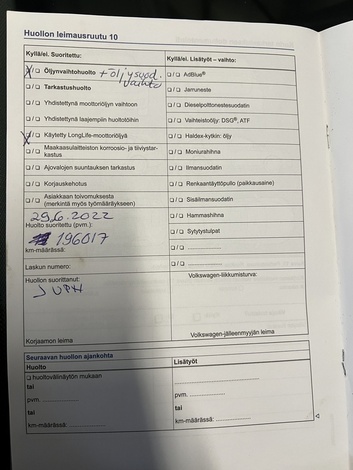 Huollon leimausruutu 10
Kyllä/ei. Suoritettu:
X/❏ Öljynvaihtohuolto + öljysuod.
vaihto
❏/❏ Tarkastushuolto
❏/❏ Yhdistettynä moottoriöljyn vaihtoon
❏/❏ Yhdistettynä laajempiin huoltotöihin
X/❏ Käytetty LongLife-moottoriöljyä
❏/❏ Maakaasulaitteiston korroosio- ja tiiviystar-
kastus
❏/❏ Ajovalojen suuntauksen tarkastus
❏/❏ Korjauskehotus
❏/❏ Asiakkaan toivomuksesta
(merkintä myös työmääräykseen)
29.6.2022
Huolto suoritettu (pvm.):
196017
km-määrässä:
Laskun numero:
Huollon suorittanut:
Korjaamon leima
Kyllä/ei. Lisätyöt – vaihto:
❏/❏ AdBlue®
❏/❏ Jarruneste
❏/❏ Dieselpolttonestesuodatin
❏/❏ Vaihteistoöljy: DSG®, ATF
❏/❏ Haldex-kytkin: öljy
❏/❏ Moniurahihna
❏/❏ Ilmansuodatin
❏/❏ Renkaantäyttöpullo (paikkausaine)
❏/❏ Sisäilmansuodatin
❏/❏ Hammashihna
❏/❏ Sytytystulpat
❏/❏ ....................
❏/❏ ....................
Volkswagen-liikkumisturva:
Volkswagen-jälleenmyyjän leima
Seuraavan huollon ajankohta
Huolto
❏ huoltovälinäytön mukaan
tai
pvm. ....................
tai
km-määrässä: ....................
Lisätyöt:
....................
pvm. ....................
tai
km-määrässä: ....................